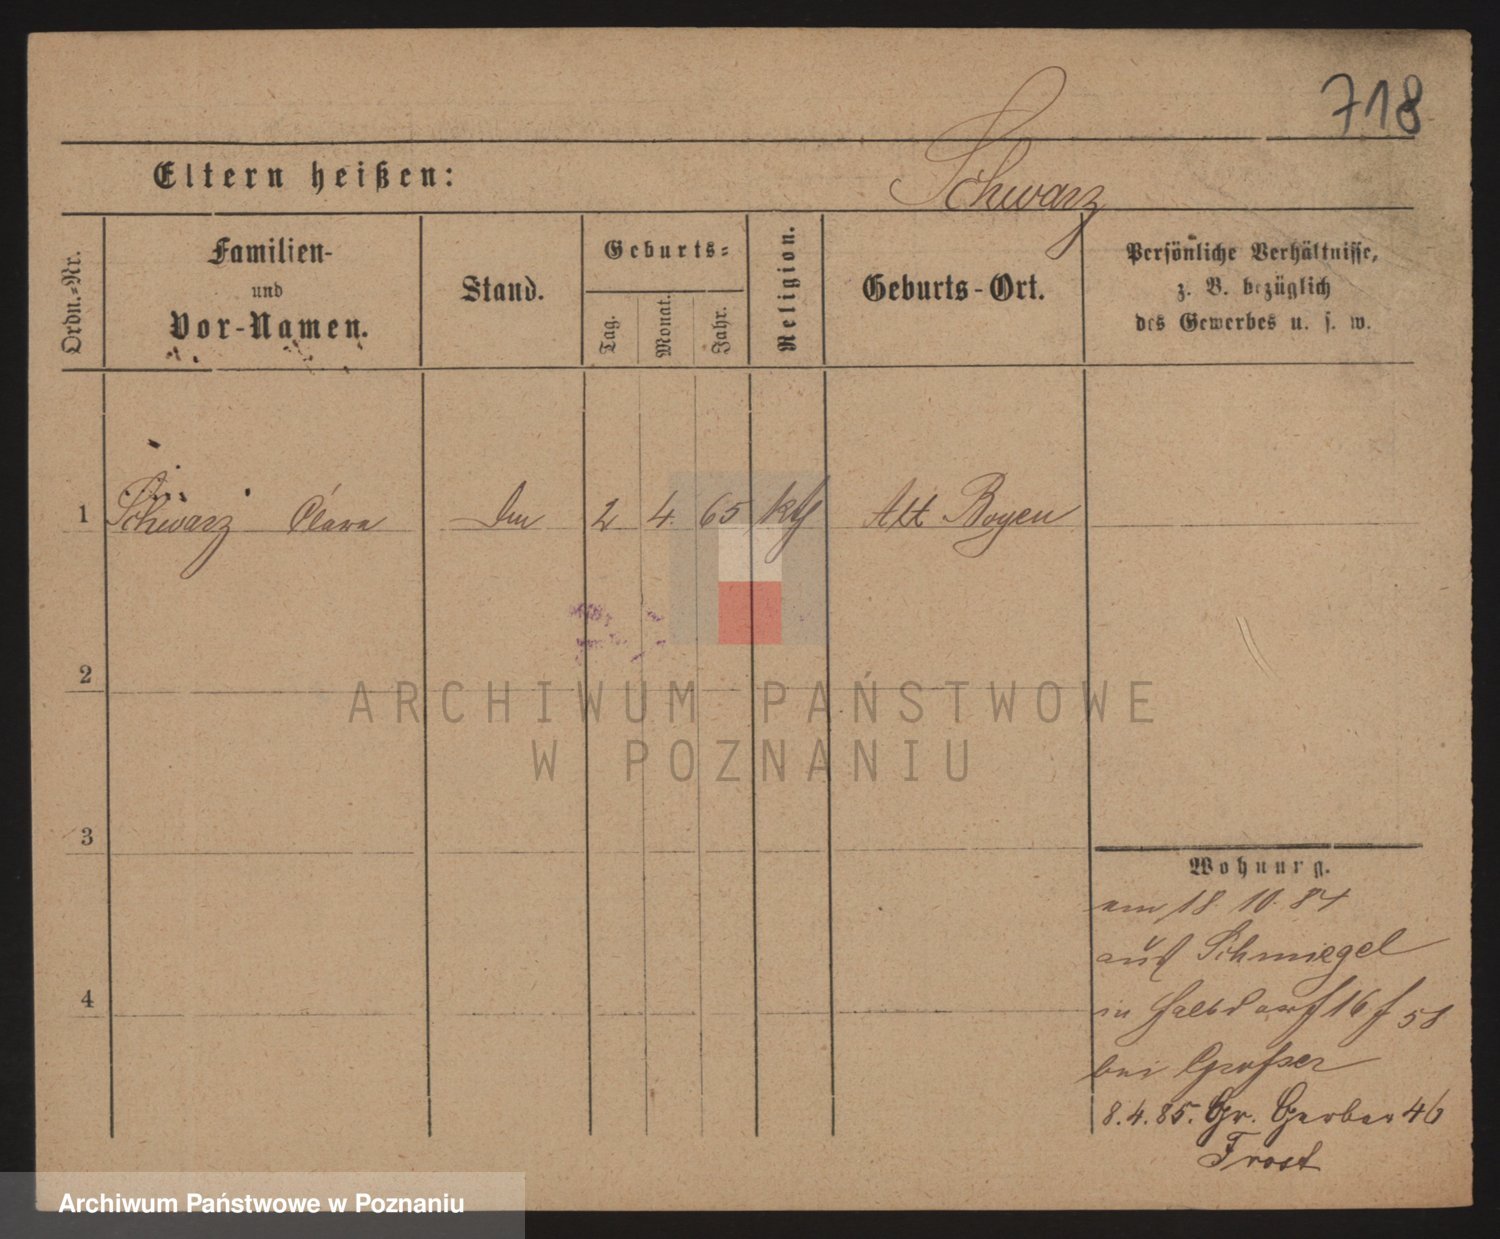 718
Eltern heißen:
Schwarz
Ordn.-Nr.
Familien-
und
Vor-Namen.
Stand.
Geburts-
Tag.
Monat.
Jahr.
Religion.
Geburts-Ort.
Persönliche Verhältnisse,
z. B. bezüglich
des Gewerbes u. s. w.
1 Schwarz Clara 2 4. 65 kth Alt Boyen
2
ARCHIWUM PAŃSTWOWE
W POZNANIU
3
Wohnung.
am 18 10. 84
aus Schmiegel
in Halbdorf 16
bei Grosser
8.4.85. Gr. Gerber 46
Frost
4
Archiwum Państwowe w Poznaniu